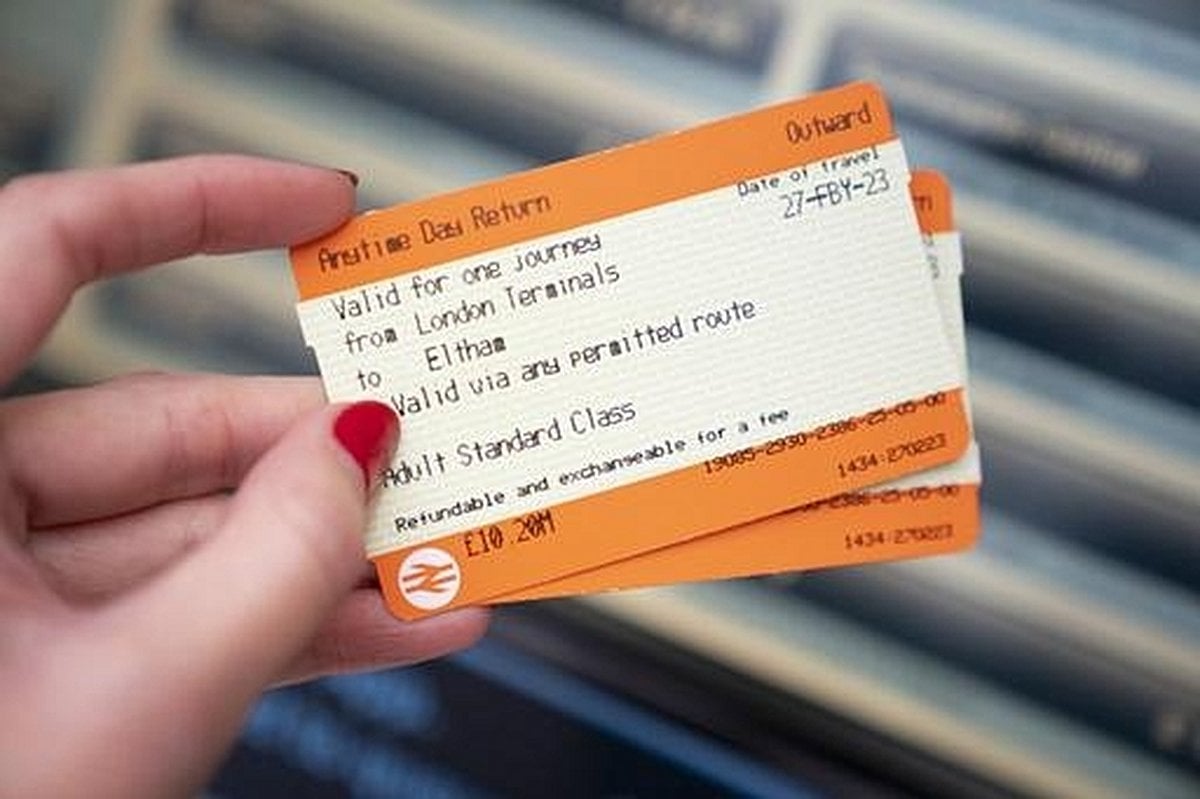 Outward
Anytime Day Return
Date of travel
27-FBY-23
Valid for one journey
from London Terminals
to Eltham
Valid via any permitted route
Adult Standard Class
Refundable and exchangeable for a fee
19085-2930-2386-25-05-00
£10.20M
1434:270223
-2386-25-05-00
1434:270223